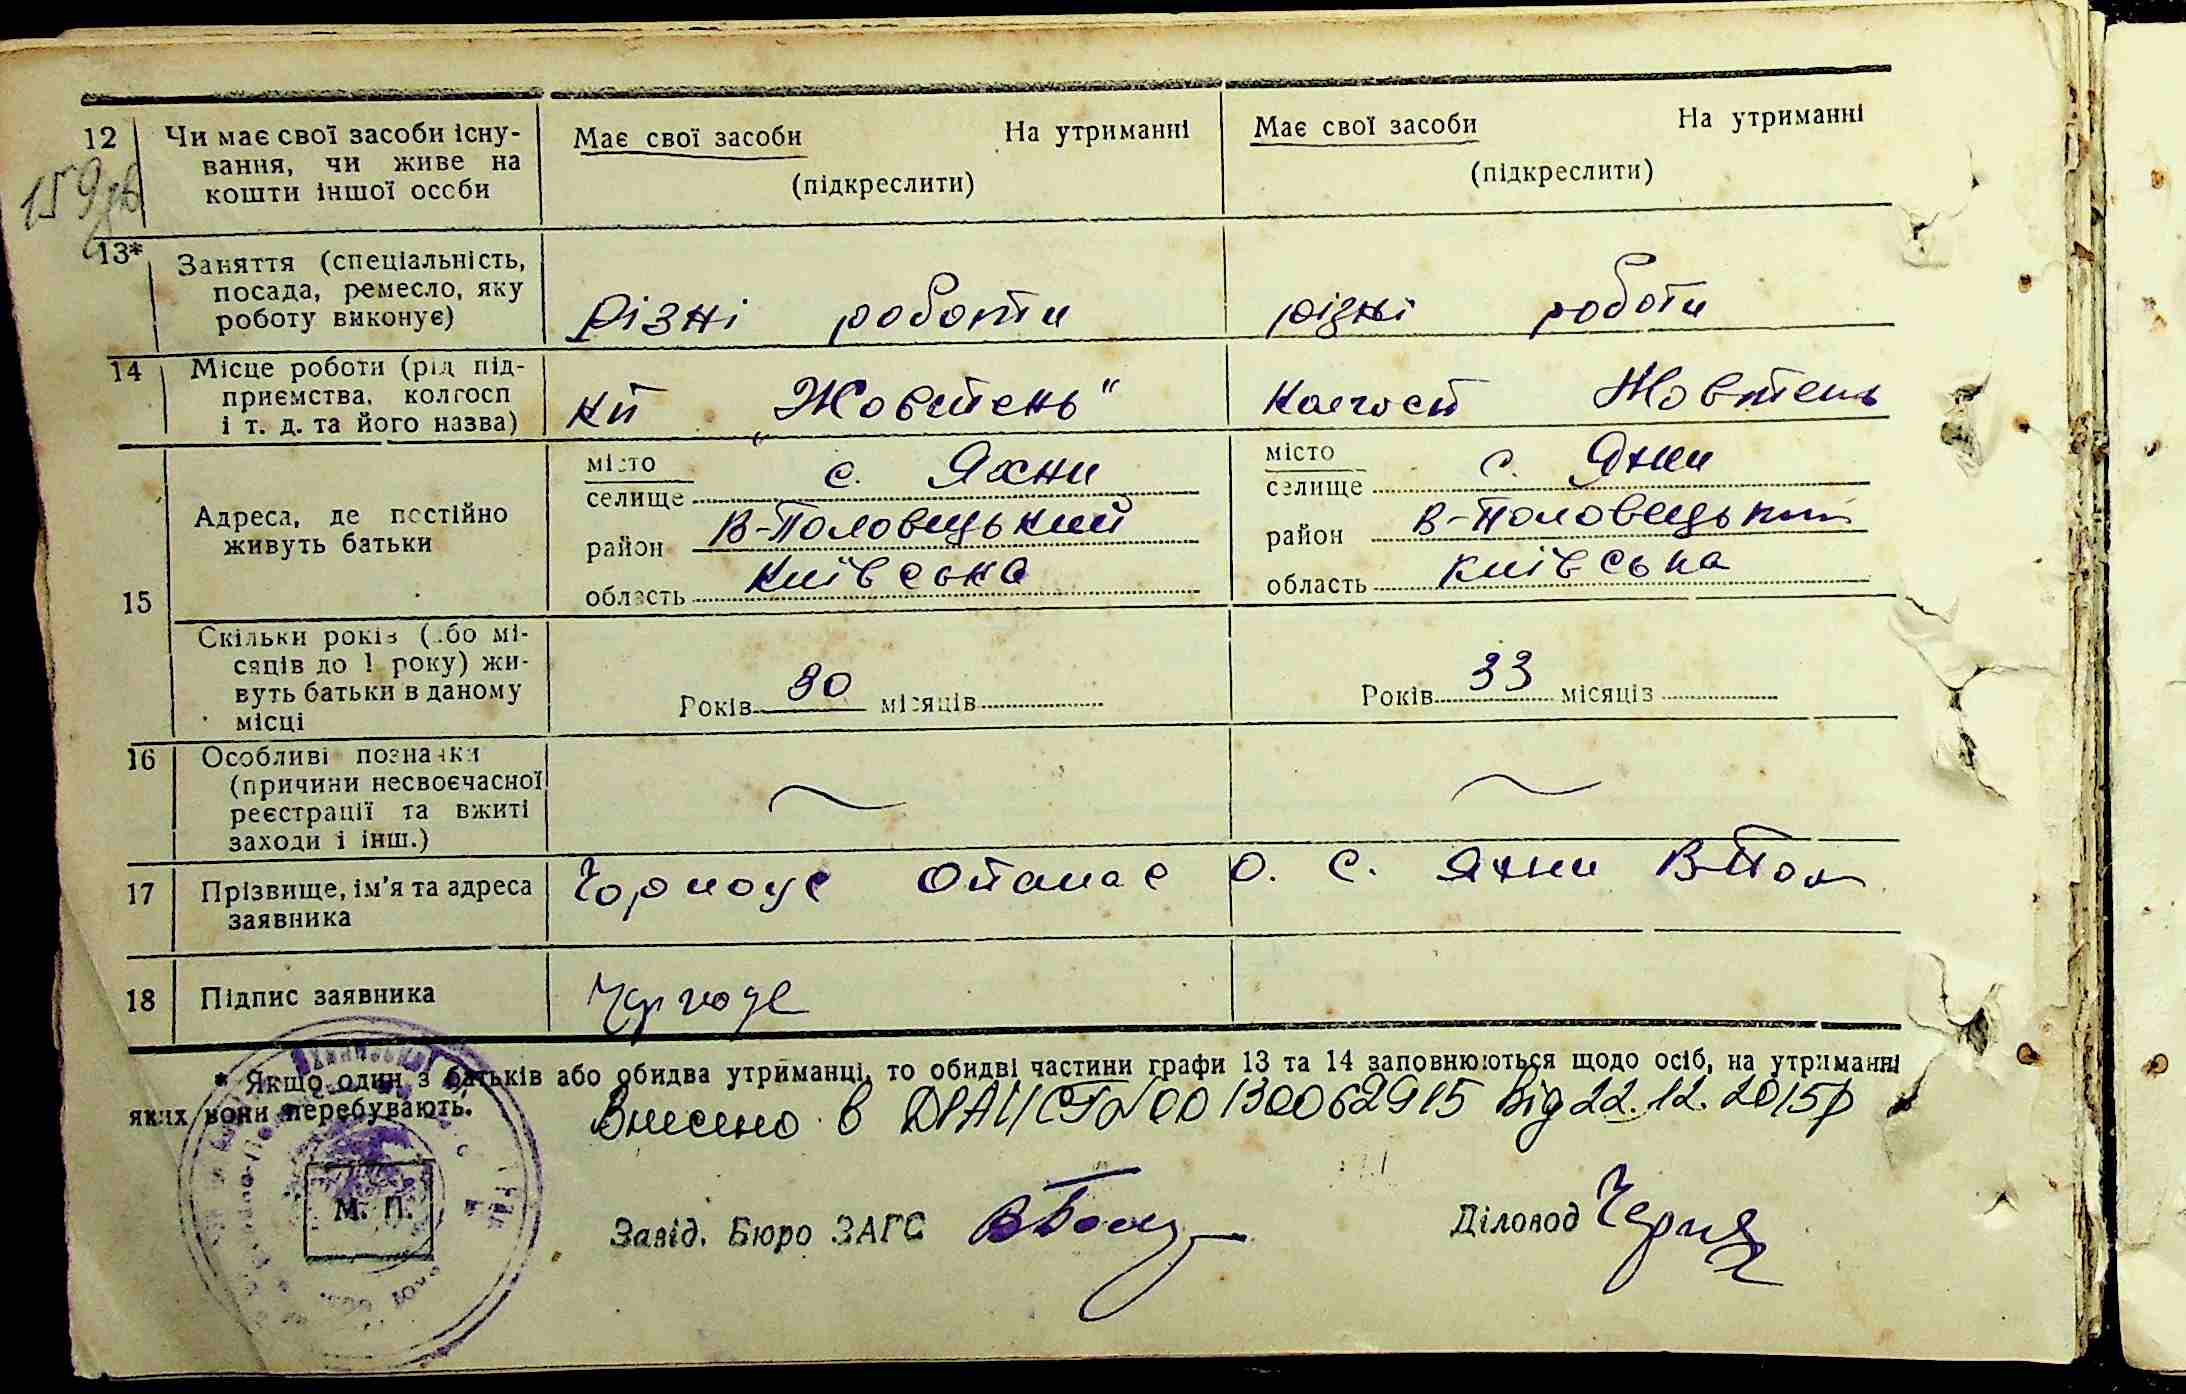 12 Чи має свої засоби існу-
вання, чи живе на
кошти іншої особи
Має свої засоби На утриманні
(підкреслити)
Має свої засоби На утриманні
(підкреслити)
159
13* Заняття (спеціальність,
посада, ремесло, яку
роботу виконує)
Різні роботи
різні роботи
14 Місце роботи (рід під-
приємства, колгосп
і т. д. та його назва)
кп „Жовтень"
Колгосп Жовтень
15
Адреса, де постійно
живуть батьки
місто
селище с. Яхни
район В-Половецький
область Київська
місто
селище с. Яхни
район В-Половецький
область Київська
Скільки років (або мі-
сяців до 1 року) жи-
вуть батьки в даному
місці
Років 30 місяців
Років 33 місяців
16 Особливі позначки
(причини несвоєчасної
реєстрації та вжиті
заходи і інш.)
17 Прізвище, ім'я та адреса
заявника
Чорноус Опанас О. С. Яхни В-Пол
18 Підпис заявника
Чорноус
* Якщо один з батьків або обидва утриманці, то обидві частини графи 13 та 14 заповнюються щодо осіб, на утриманні
яких вони перебувають.
Внесено в ДРАЦСГ № 00130062915 від 22.12.2015р
М. П.
Завід. Бюро ЗАГС
Діловод